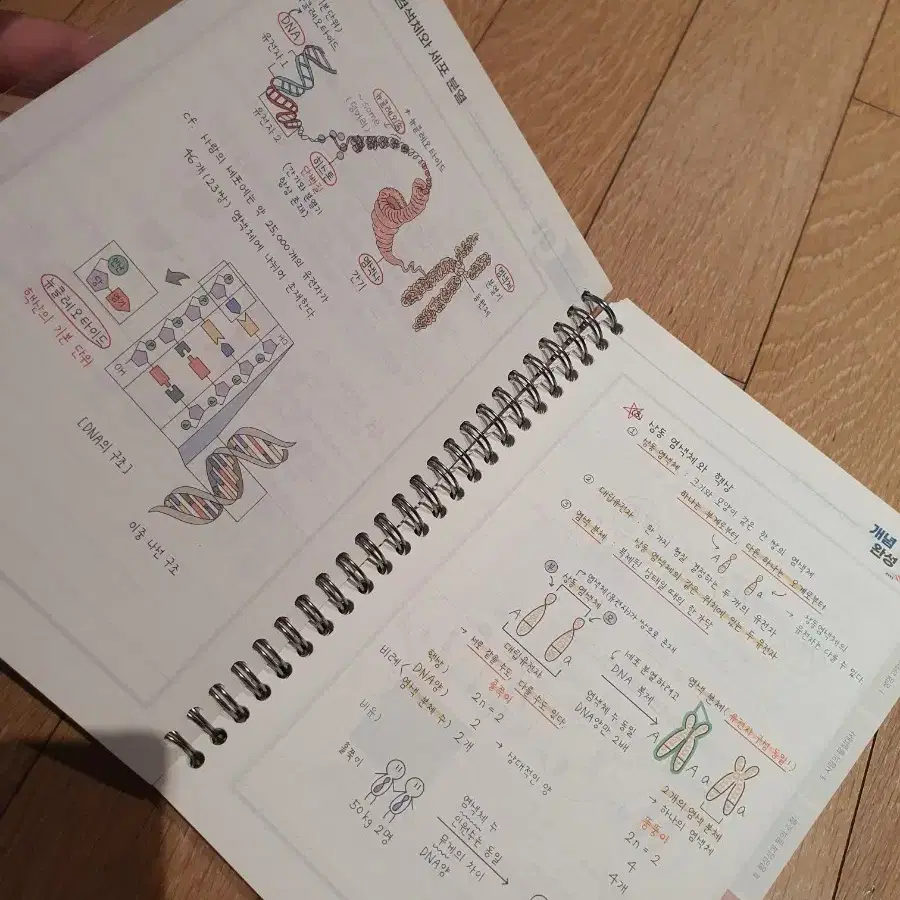 염색체와 세포 분열
DNA
유전자 1
유전자 2
뉴클레오솜
히스톤
단백질
(간기와 분열기
항상 존재)
염색사
간기
염색체
분열기
응축체
cf. 사람의 세포에는 약 25,000개의 유전자가
46개(23쌍) 염색체에 나뉘어 존재한다
인산
당
염기
뉴클레오타이드
핵산의 기본 단위
[DNA의 구조]
이중 나선 구조
개념
완성
상동 염색체와 핵상
① 상동 염색체 : 크기와 모양이 같은 한 쌍의 염색체
하나는 부계로부터, 다른 하나는 모계로부터
A a
→ 상동염색체의
유전자가 다를 수 있다
② 대립유전자 : 한 가지 형질 결정하는 두 개의 유전자
상동 염색체의 같은 위치에 있는 두 유전자
③ 염색 분체 : 복제된 상태일 때의 한 가닥
부
상동 염색체
모
A a
대립유전자
→ 서로 같을 수도, 다를 수도 있다
세포 분열하려고
DNA 복제
염색체 수 동일
DNA양만 2배
염색 분체 (유전자 구성 동일!)
A A a a
2개의 염색 분체
→ 하나의 염색체
비례
핵상
DNA양
염색 분체 수
홀쭉이
2n = 2
2
2개
→ 상대적인 양
뚱뚱이
2n = 2
4
4개
비유)
홀쭉이
50kg 2명
염색체 수
인원수는 동일
무게의 차이
DNA양